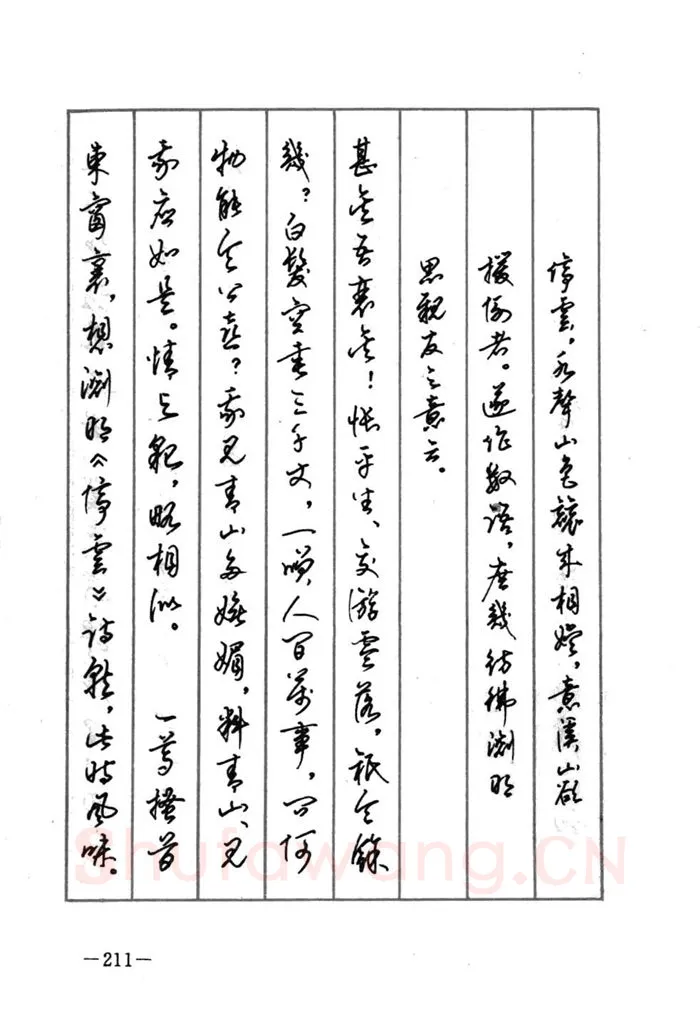 停雲，水聲山色競來相娛，意溪山欲
援例者。遂作數語，庶幾仿彿淵明
思親友之意云。
甚矣吾衰矣！悵平生、交游零落，祇今餘
幾？白髮空垂三千丈，一笑人間萬事，問何
物能令公喜？我見青山多嫵媚，料青山、見
我應如是。情与貌，略相似。　一尊搔首
東窗裏，想淵明《停雲》詩就，此時風味。
Shufawang.CN
—211—